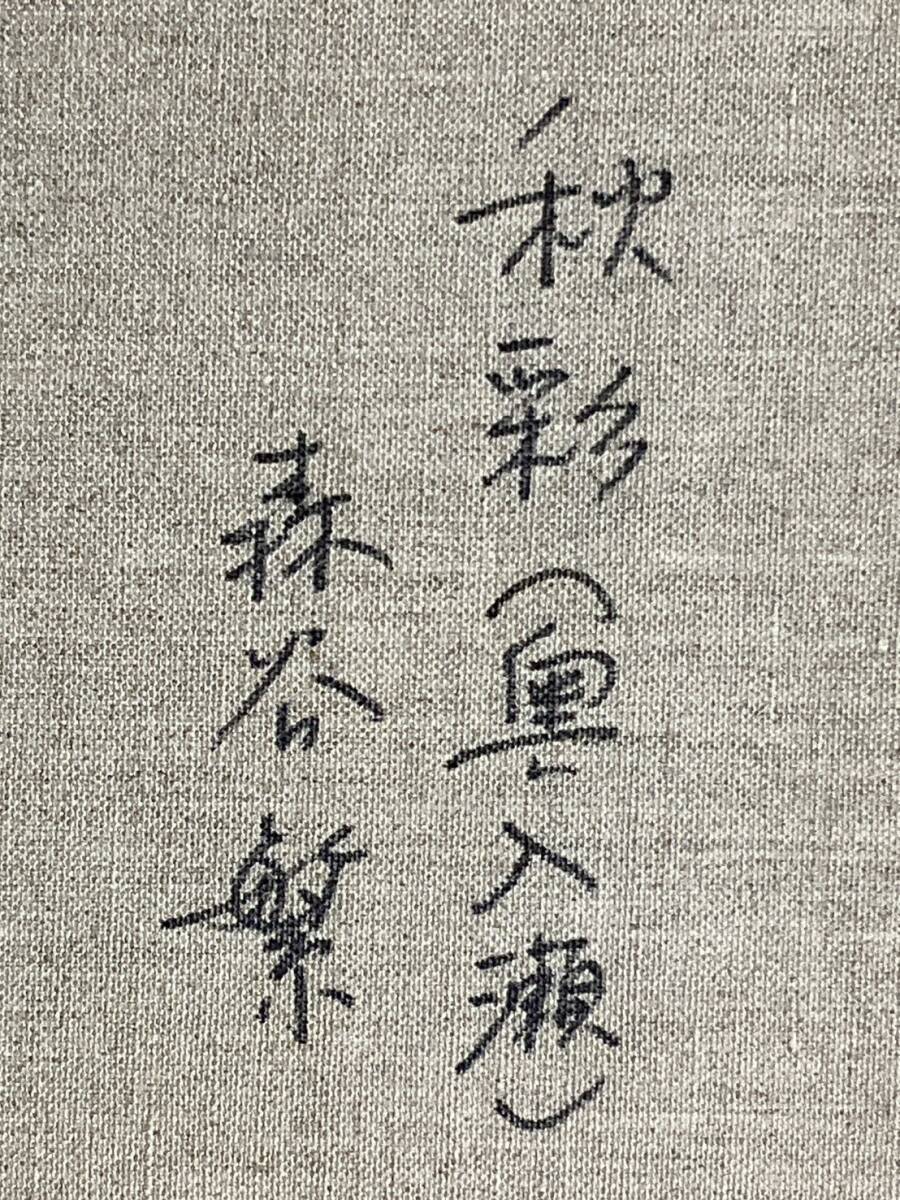 秋彩(奥入瀬)
森谷繁